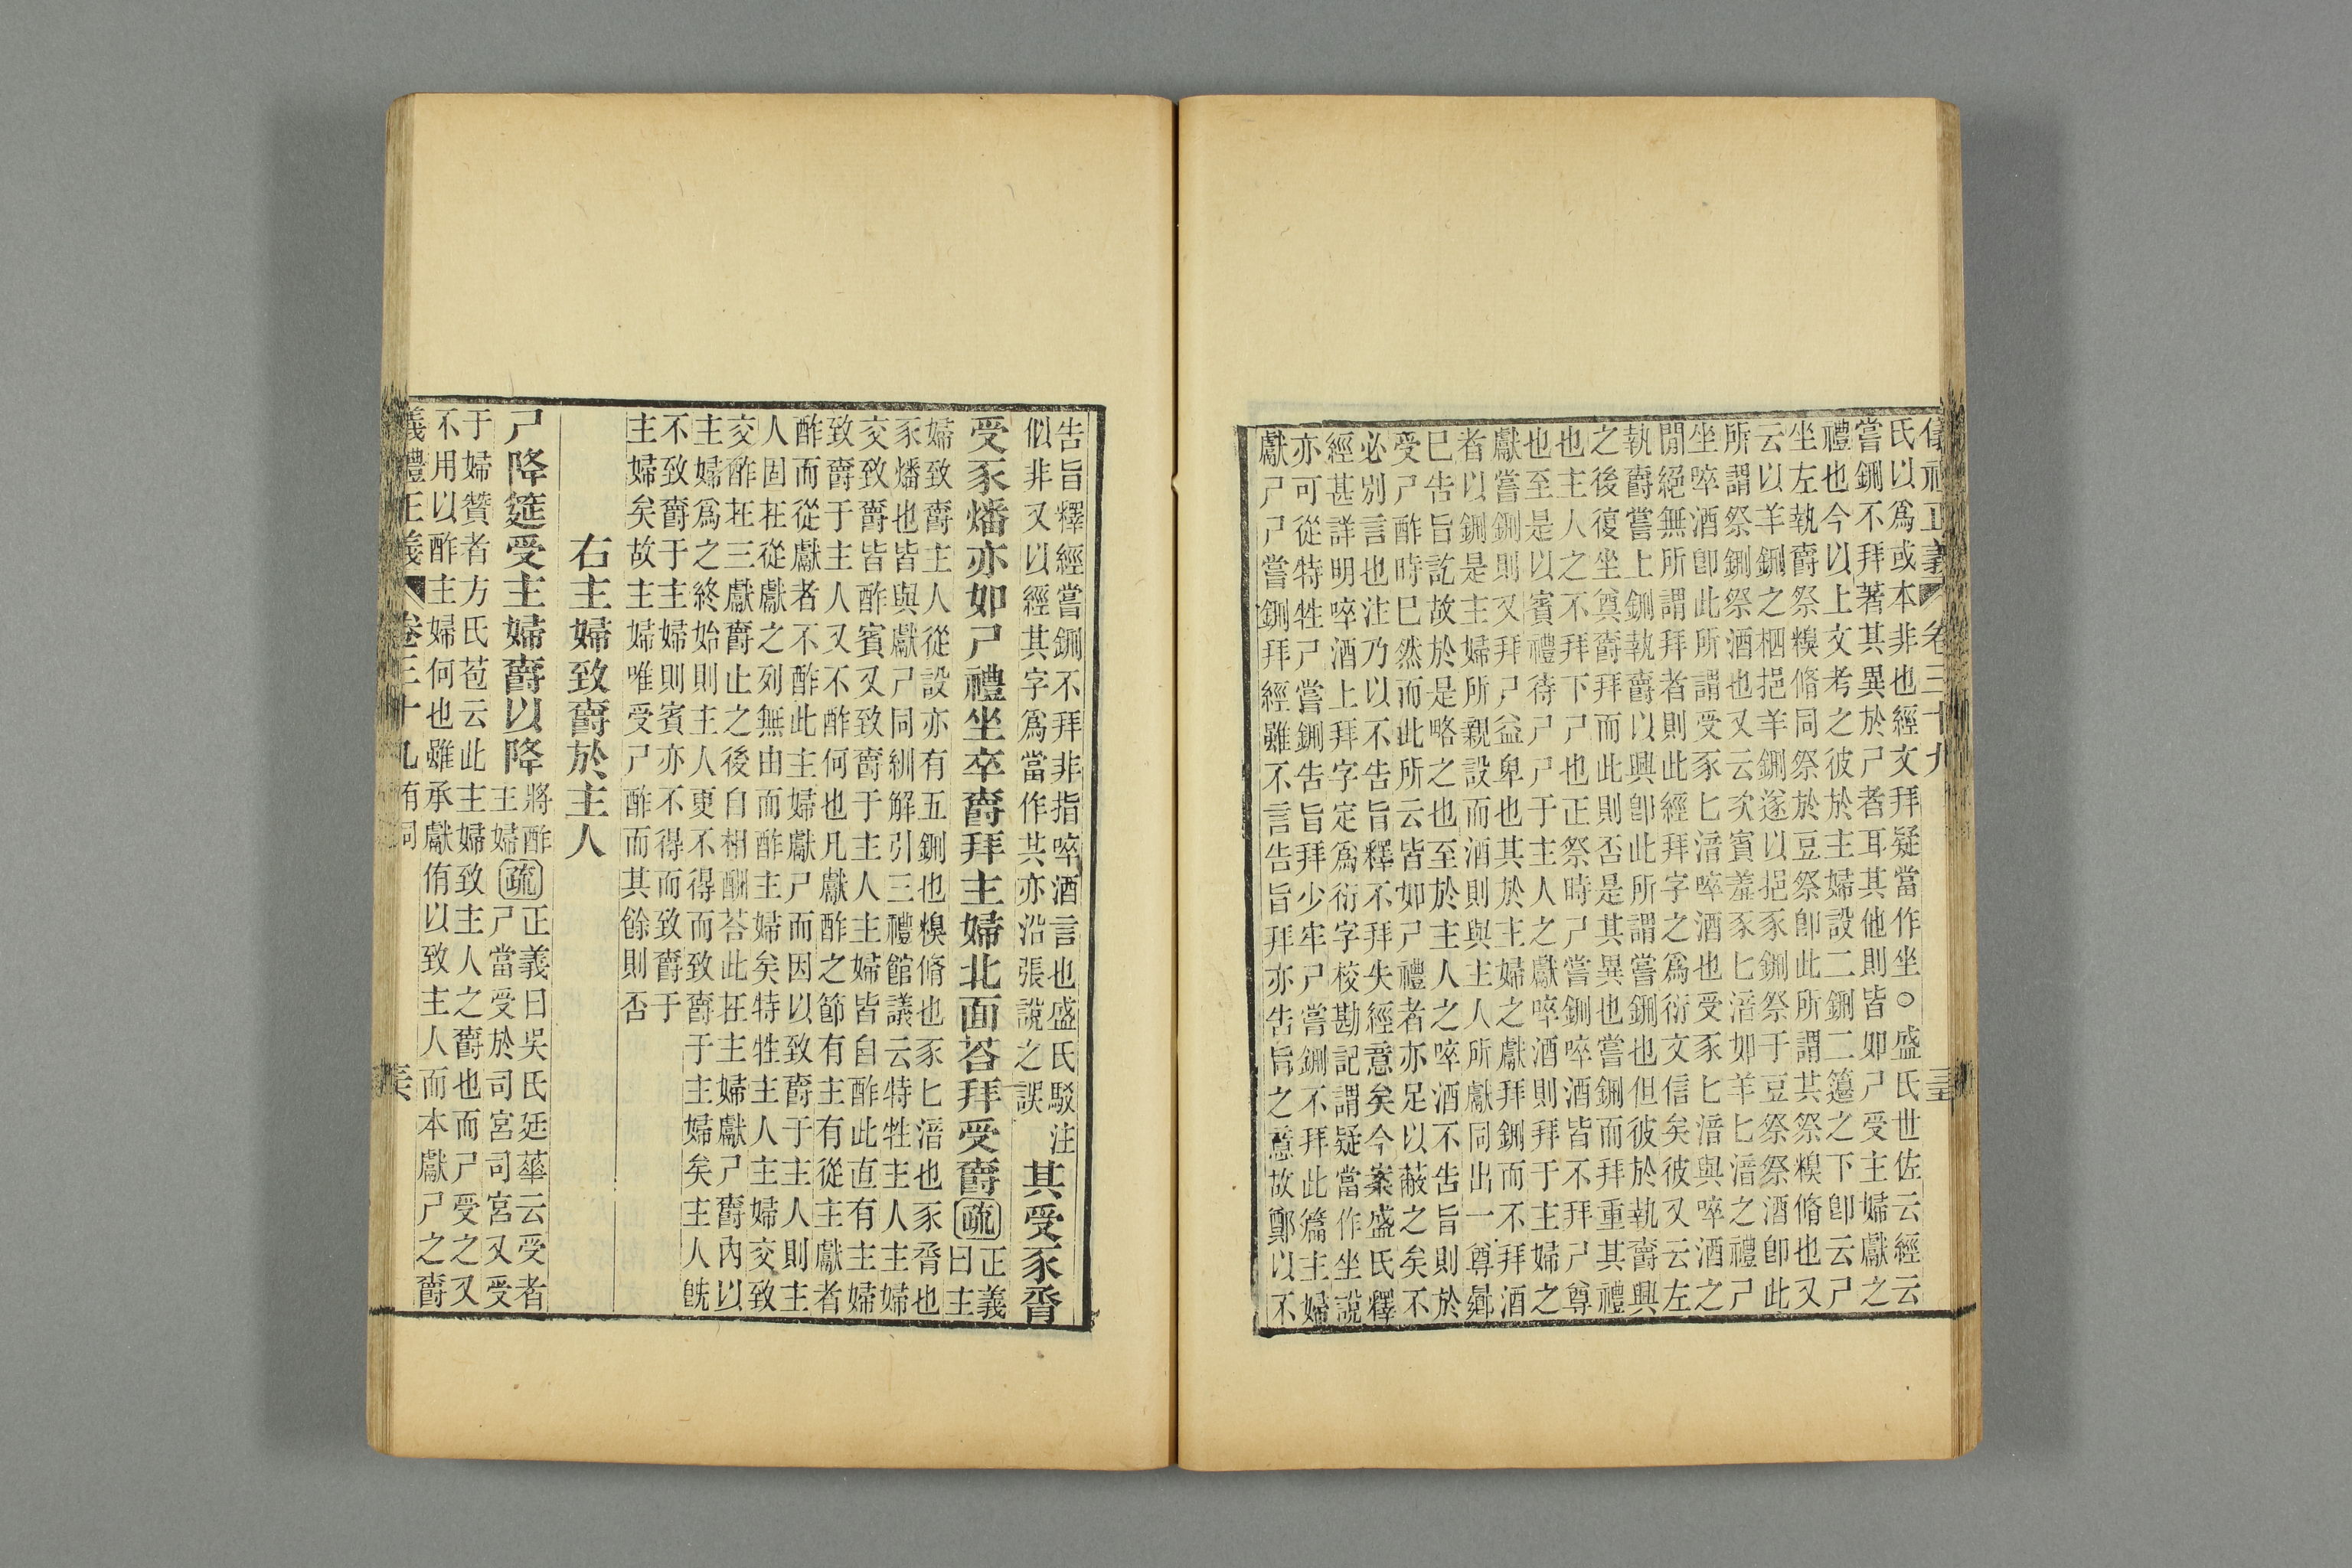 儀禮正義 卷三十九
氏以爲或本非也經文拜疑當作坐○盛氏世佐云經云
嘗鉶不拜著其異於尸者耳其他則皆如尸受主婦獻之
禮也今以上文考之彼於主婦設二鉶二籩之下卽云尸
坐左執爵祭糗脩同祭於豆祭卽此所謂其祭糗脩也又
云以羊鉶之柶挹羊鉶遂以挹豕鉶祭于豆祭祭酒卽此
所謂祭鉶祭酒也又云次賓羞豕匕湆如羊匕湆之禮尸
坐啐酒卽此所謂受豕匕湆啐酒也受豕匕湆與啐酒之
閒絕無所謂拜者則此經拜字之爲衍文信矣彼又云左
執爵嘗上鉶執爵以興卽此所謂嘗鉶也但彼於執爵興
之後復坐奠爵拜而此則否是其異也嘗鉶而拜重其禮
也主人之不拜下尸也正祭時尸嘗鉶啐酒皆不拜尸尊
也至是以賓禮待尸尸于主人之獻啐酒則拜于主婦之
獻嘗鉶則又拜尸益卑也其於主婦之獻拜鉶而不拜酒
者以鉶是主婦所親設而酒則與主人所獻同出一尊歸
已告旨訖故於是略之也至於主人之啐酒不告旨則於
受尸酢時已然而此所云皆如尸禮者亦足以蔽之矣不
必別言也注乃以不告旨釋不拜失經意矣今案盛氏釋
經甚詳明啐酒上拜字定爲衍字校勘記謂疑當作坐說
亦可從特牲尸嘗鉶告旨拜少牢尸嘗鉶不拜此篇主婦
獻尸尸嘗鉶拜經雖不言告旨拜亦告旨之意故鄭以不
告旨釋經嘗鉶不拜非指啐酒言也盛氏駁注
似非又以經其字爲當作共亦沿張說之誤
其受豕脀
受豕燔亦如尸禮坐卒爵拜主婦北面荅拜受爵
疏 正義曰主
婦致爵主人從設亦有五鉶也糗脩也豕匕湆也豕脀也
豕燔也皆與獻尸同紃解引三禮館議云特牲主人主婦
交致爵皆酢賓又致爵于主人主婦皆自酢此直有主婦
致爵于主人又不酢何也凡獻酢之節有主有從主獻者
酢而從獻者不酢此主婦獻尸而因以致爵于主人則主
人固在從獻之列無由而酢主婦矣特牲主人主婦交致
交酢在三獻爵止之後自相酬荅此在主婦獻尸爵內以
主婦爲之終始則主人更不得而致爵于主婦矣主人旣
不致爵于主婦則賓亦不得而致爵于
主婦矣故主婦唯受尸酢而其餘則否
右主婦致爵於主人
尸降筵受主婦爵以降
將酢
主婦
疏 正義曰吳氏廷華云受者
尸當受於司宮司宮又受
于婦贊者方氏苞云此主婦致主人之爵也而尸受之又
不用以酢主婦何也雖承獻侑以致主人而本獻尸之爵
儀禮正義 卷三十九 有司